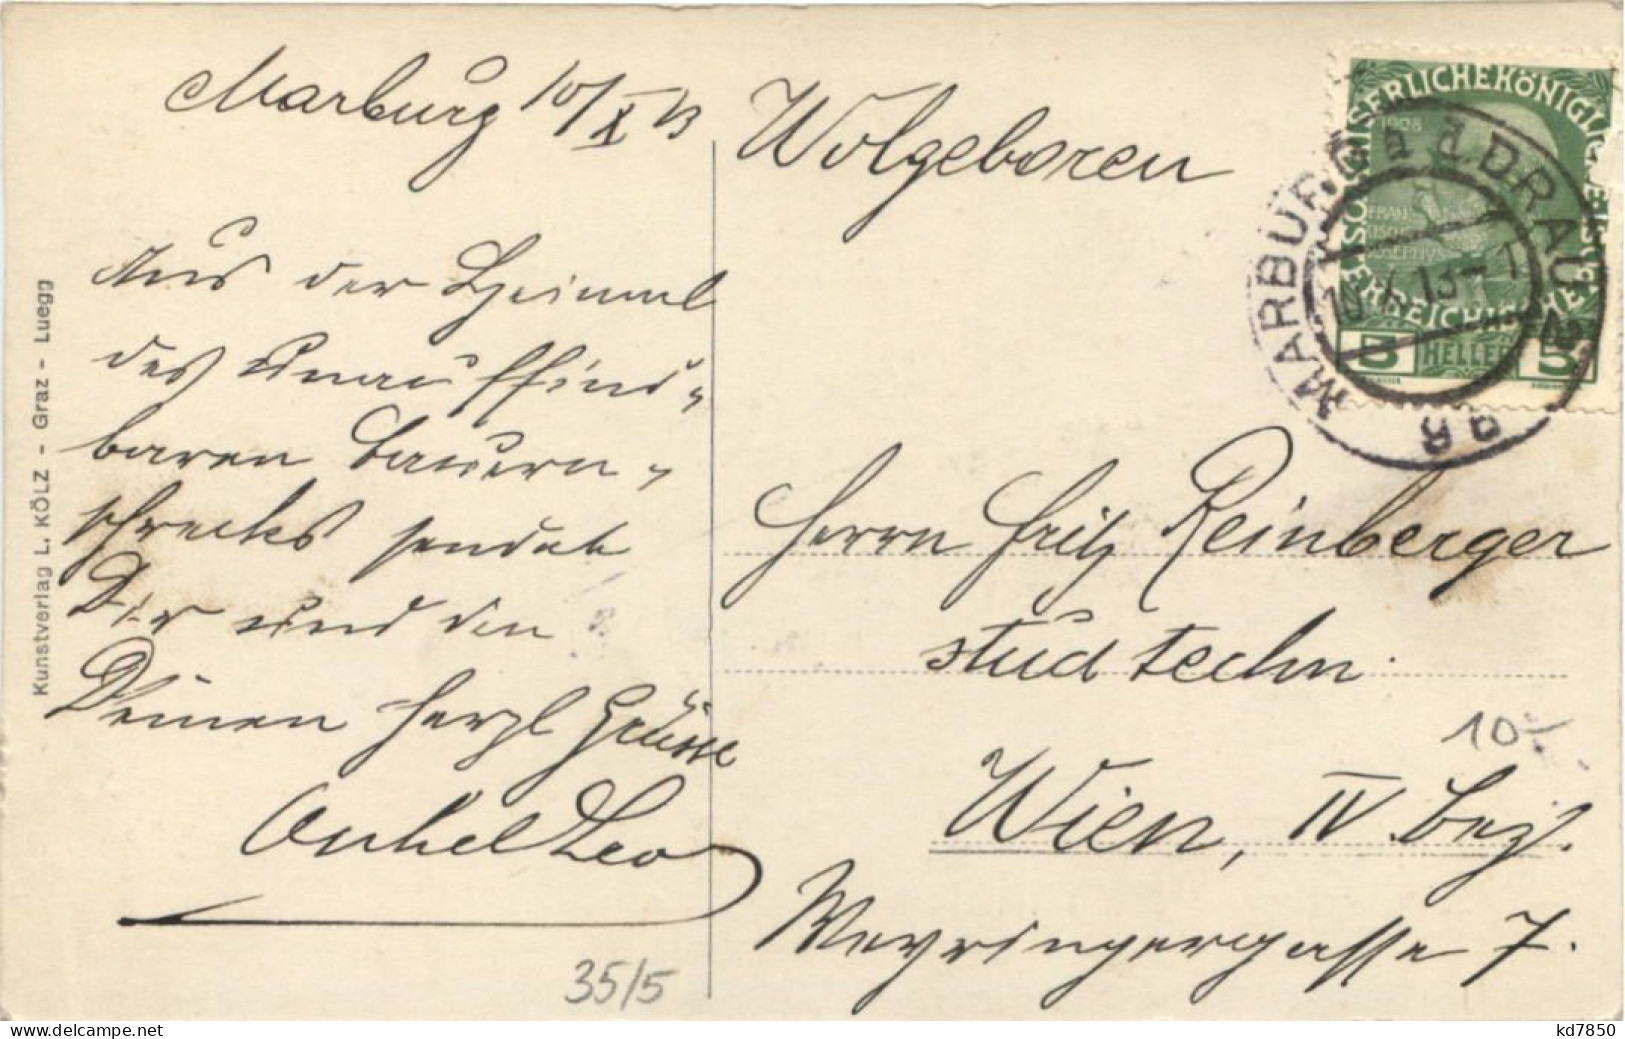 Marburg 10/X 13
Aus der Heimat
des Unauffind-
baren Bauern-
schrecks sendet
Dir und den
Deinen herzl Grüsse
Onkel Leo
35/5
Kunstverlag L. KÖLZ - Graz - Luegg
KAISERLICHE KÖNIGLICHE
ÖSTERREICHISCHE
1908
FRANZ
JOSEPH
5 HELLER 5
MARBURG a.d. DRAU
Wolgeboren
Herrn Fritz Reinberger
stud techn.
10
Wien, IV. Bez.
Weyringergasse 7.
www.delcampe.net
kd7850